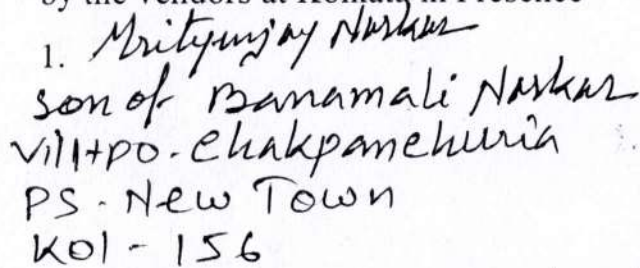 by the vendors at Kolkata in Presence
1. Mrityunjay Naskar
son of Banamali Naskar
Vill+PO. Chakpanchuria
PS. New Town
KOl - 156